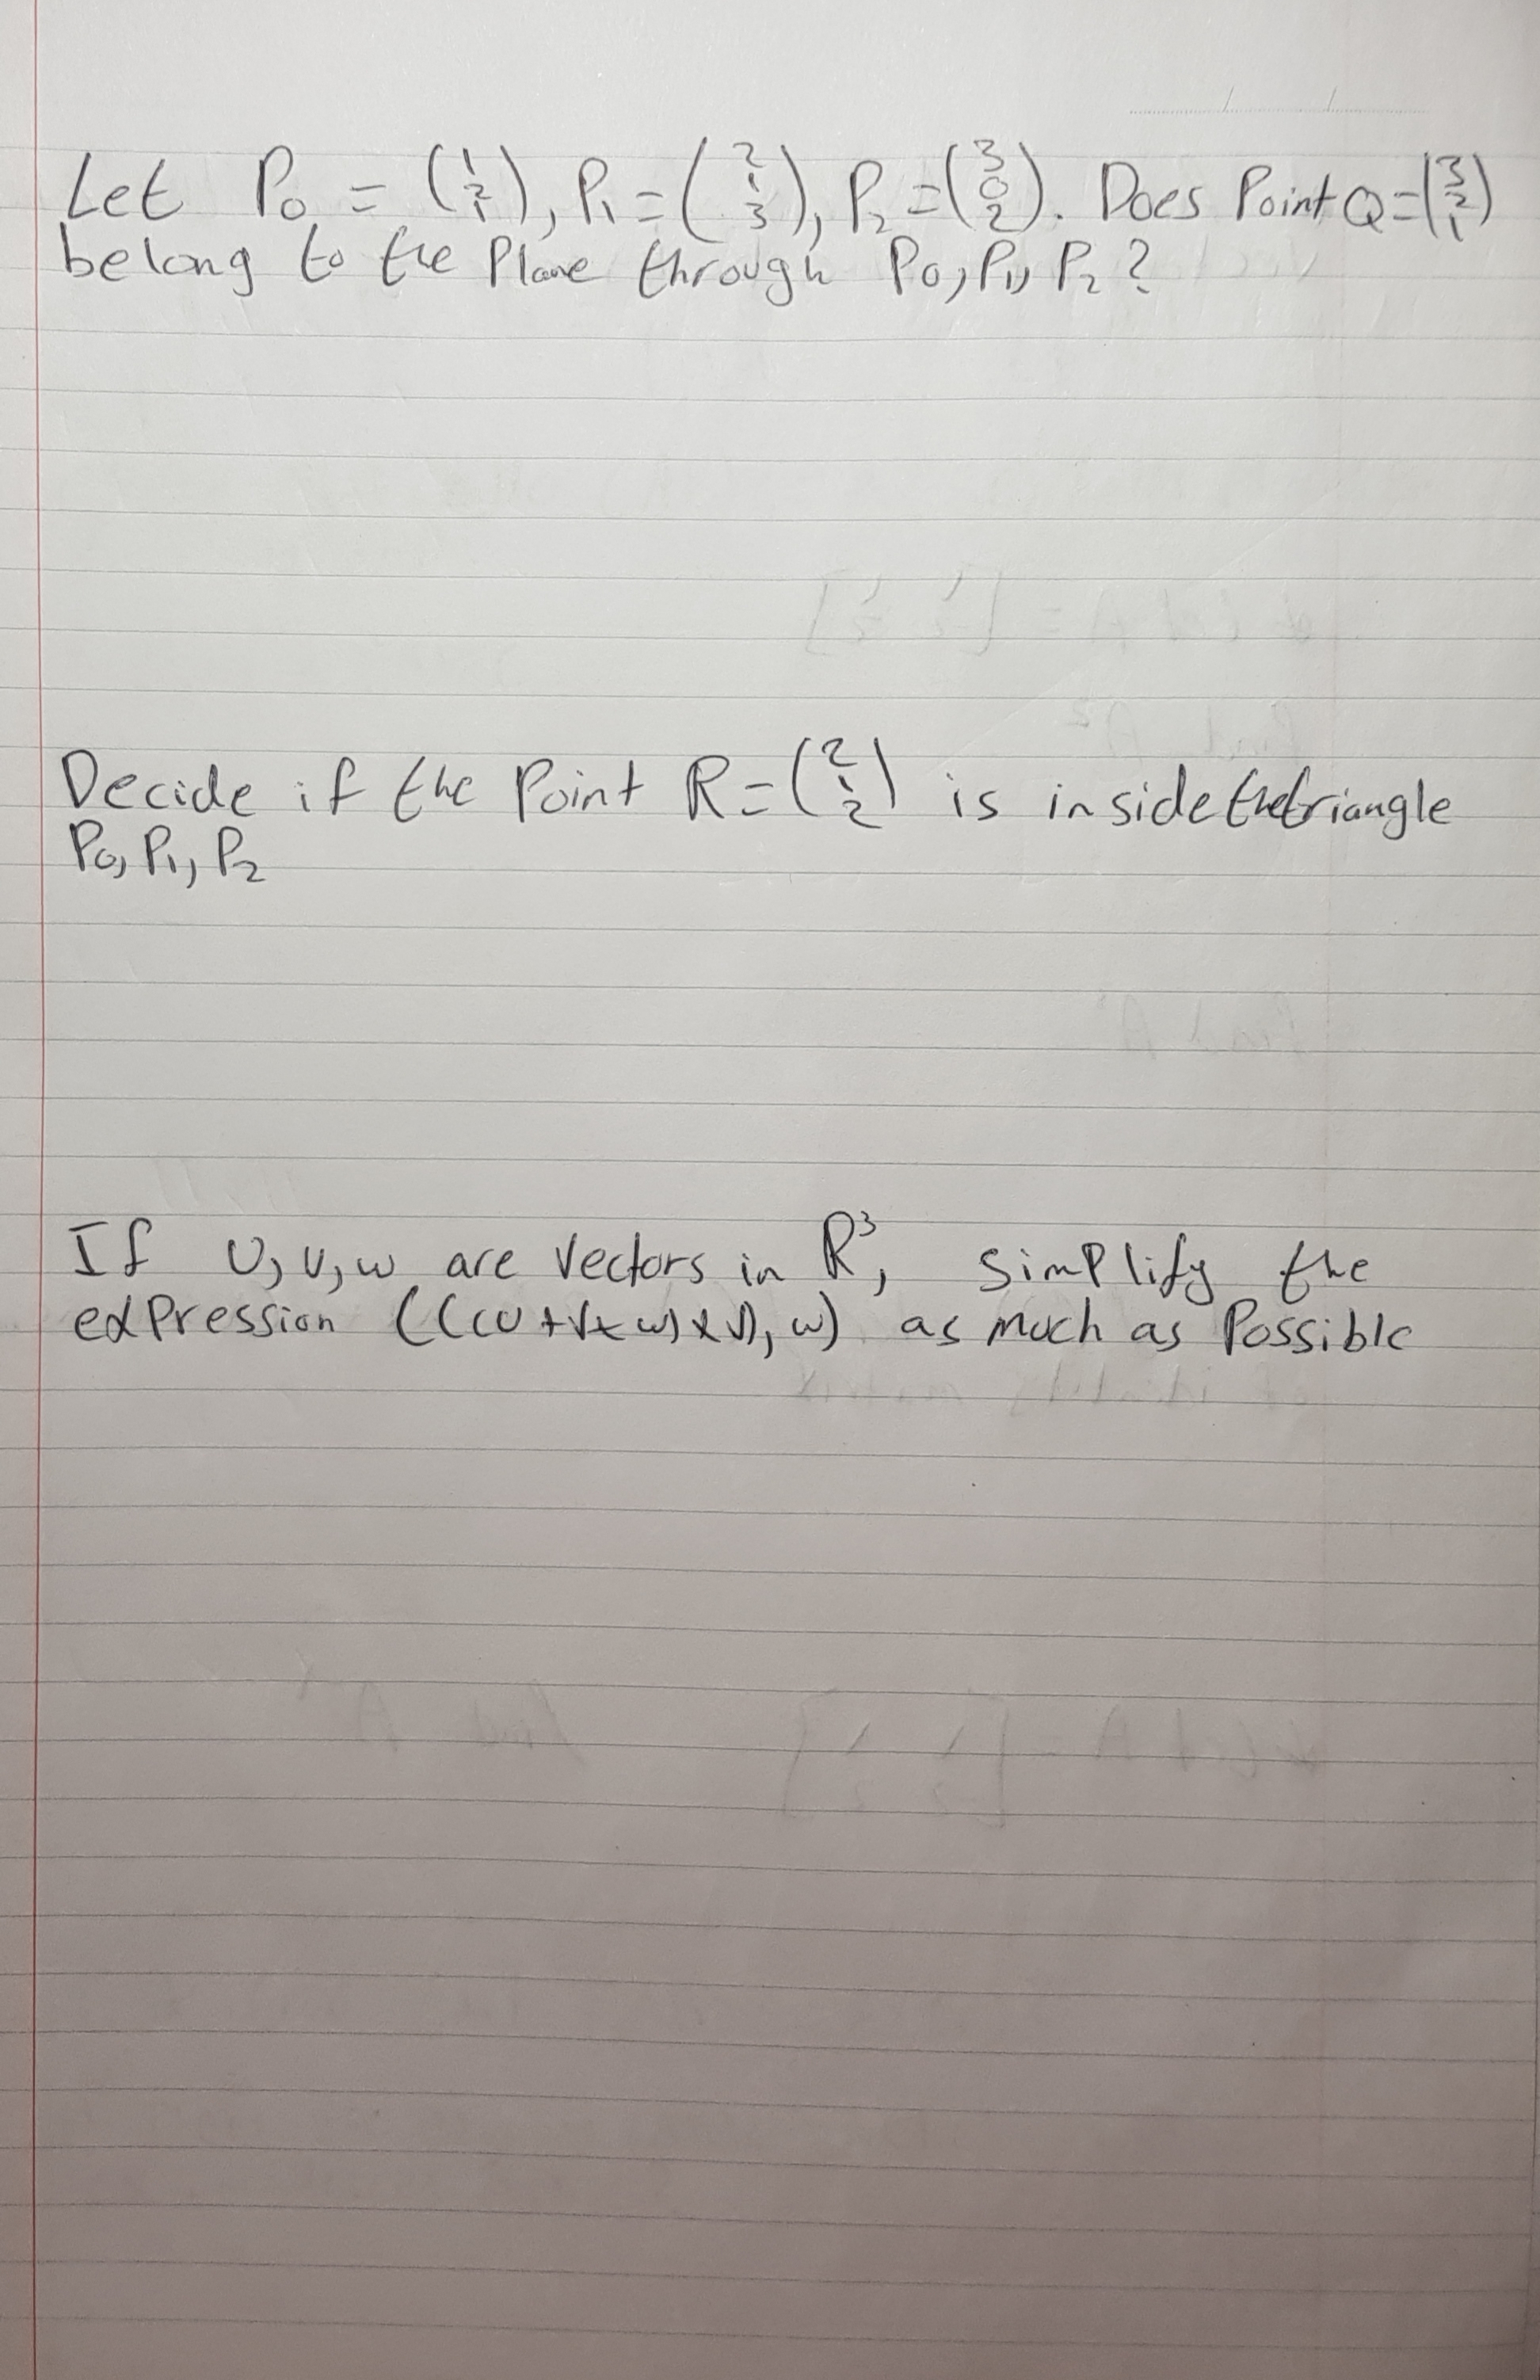 Let P₀ = (1 2 1), P₁ = (2 1 3), P₂ = (3 0 2). Does Point Q = (3 2 1)
belong to the Plane through P₀, P₁, P₂ ?
Decide if the Point R = (2 1 2) is inside the triangle
P₀, P₁, P₂
If U, V, w are vectors in R³, simplify the
expression (((U + V + w) x V), w) as much as Possible